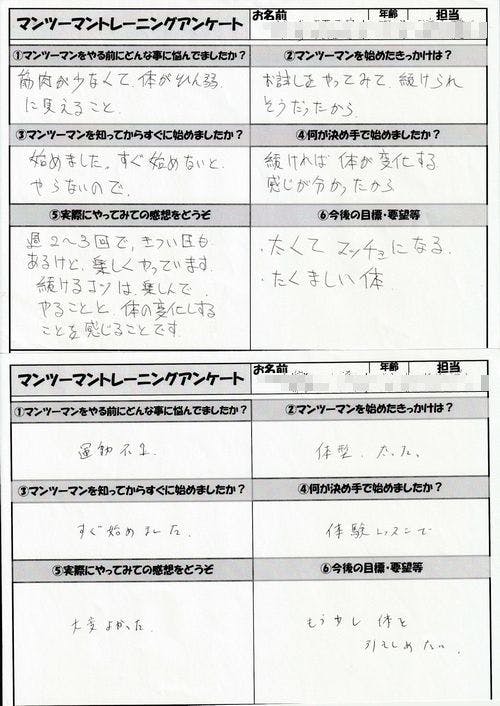 マンツーマントレーニングアンケート お名前 年齢 担当
①マンツーマンをやる前にどんな事に悩んでましたか?
②マンツーマンを始めたきっかけは?
筋肉が少なくて、体がひ弱
に見えること。
お試しをやってみて、続けられ
そうだったから
③マンツーマンを知ってからすぐに始めましたか?
④何が決め手で始めましたか?
始めました。すぐ始めないと、
やらないので。
続ければ体が変化する
感じが分かったから
⑤実際にやってみての感想をどうぞ
⑥今後の目標・要望等
週2〜3回で、きつい日も
あるけど、楽しくやっています。
続けるコツは、楽しんで
やることと、体の変化しする
ことを感じることです
・太くてマッチョになる。
・たくましい体
マンツーマントレーニングアンケート お名前 年齢 担当
①マンツーマンをやる前にどんな事に悩んでましたか?
②マンツーマンを始めたきっかけは?
運動不足
体型
③マンツーマンを知ってからすぐに始めましたか?
④何が決め手で始めましたか?
すぐ始めました。
体験レッスンで
⑤実際にやってみての感想をどうぞ
⑥今後の目標・要望等
大変よかった。
もう少し 体を
引きしめたい。